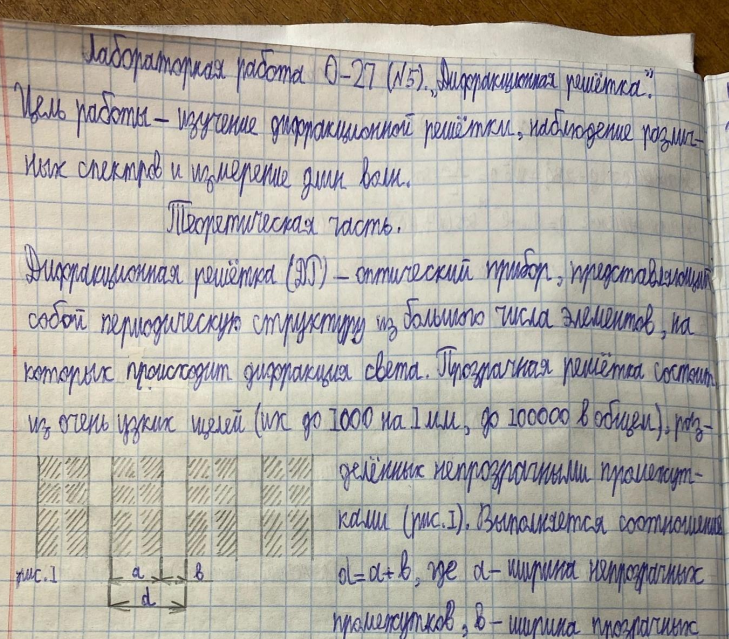 Лабораторная работа О-27 (№5). „Дифракционная решётка".
Цель работы – изучение дифракционной решётки, наблюдение различ-
ных спектров и измерение длин волн.
Теоретическая часть.
Дифракционная решётка (ДР) – оптический прибор, представляющий
собой периодическую структуру из большого числа элементов, на
которых происходит дифракция света. Прозрачная решётка состоит
из очень узких щелей (их до 1000 на 1 мм, до 100000 в общем), раз-
делённых непрозрачными промежут-
ками (рис. 1). Выполняется соотношение
рис. 1 a b
d=a+b, где a – ширина непрозрачных
d
промежутков, b – ширина прозрачных